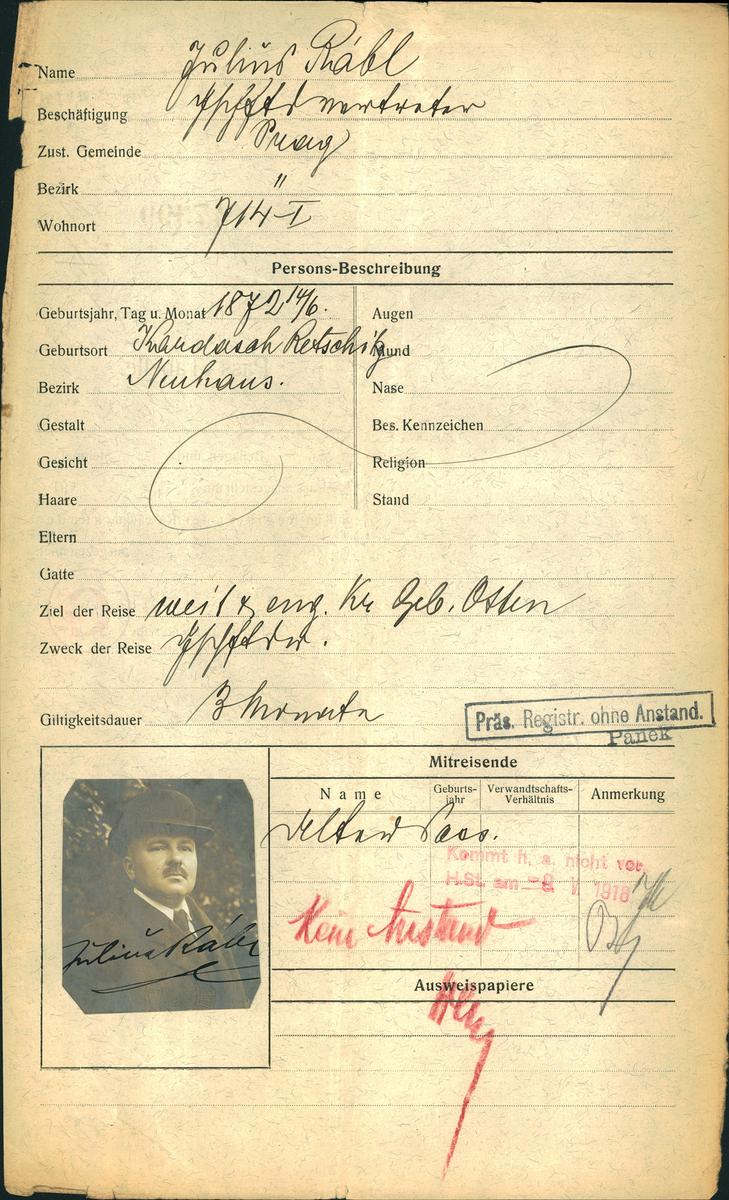 Name Julius Rábl
Beschäftigung vertreter
Zust. Gemeinde Prag
Bezirk "
Wohnort 714-I
Persons-Beschreibung
Geburtsjahr, Tag u. Monat 1872 14/6.
Augen
Geburtsort Kardasch Retschitz
Mund
Bezirk Neuhaus.
Nase
Gestalt
Bes. Kennzeichen
Gesicht
Religion
Haare
Stand
Eltern
Gatte
Ziel der Reise weit & eng. Kr. Geb. Osten
Zweck der Reise
Giltigkeitsdauer 3 Monate
Präs. Registr. ohne Anstand.
Panek
Mitreisende
Name
Geburts-jahr
Verwandtschafts-Verhältnis
Anmerkung
Alter Pass.
Kommt h. a. nicht vor.
H.St. am 1918
Kein Anstand
Julius Rábl
Ausweispapiere